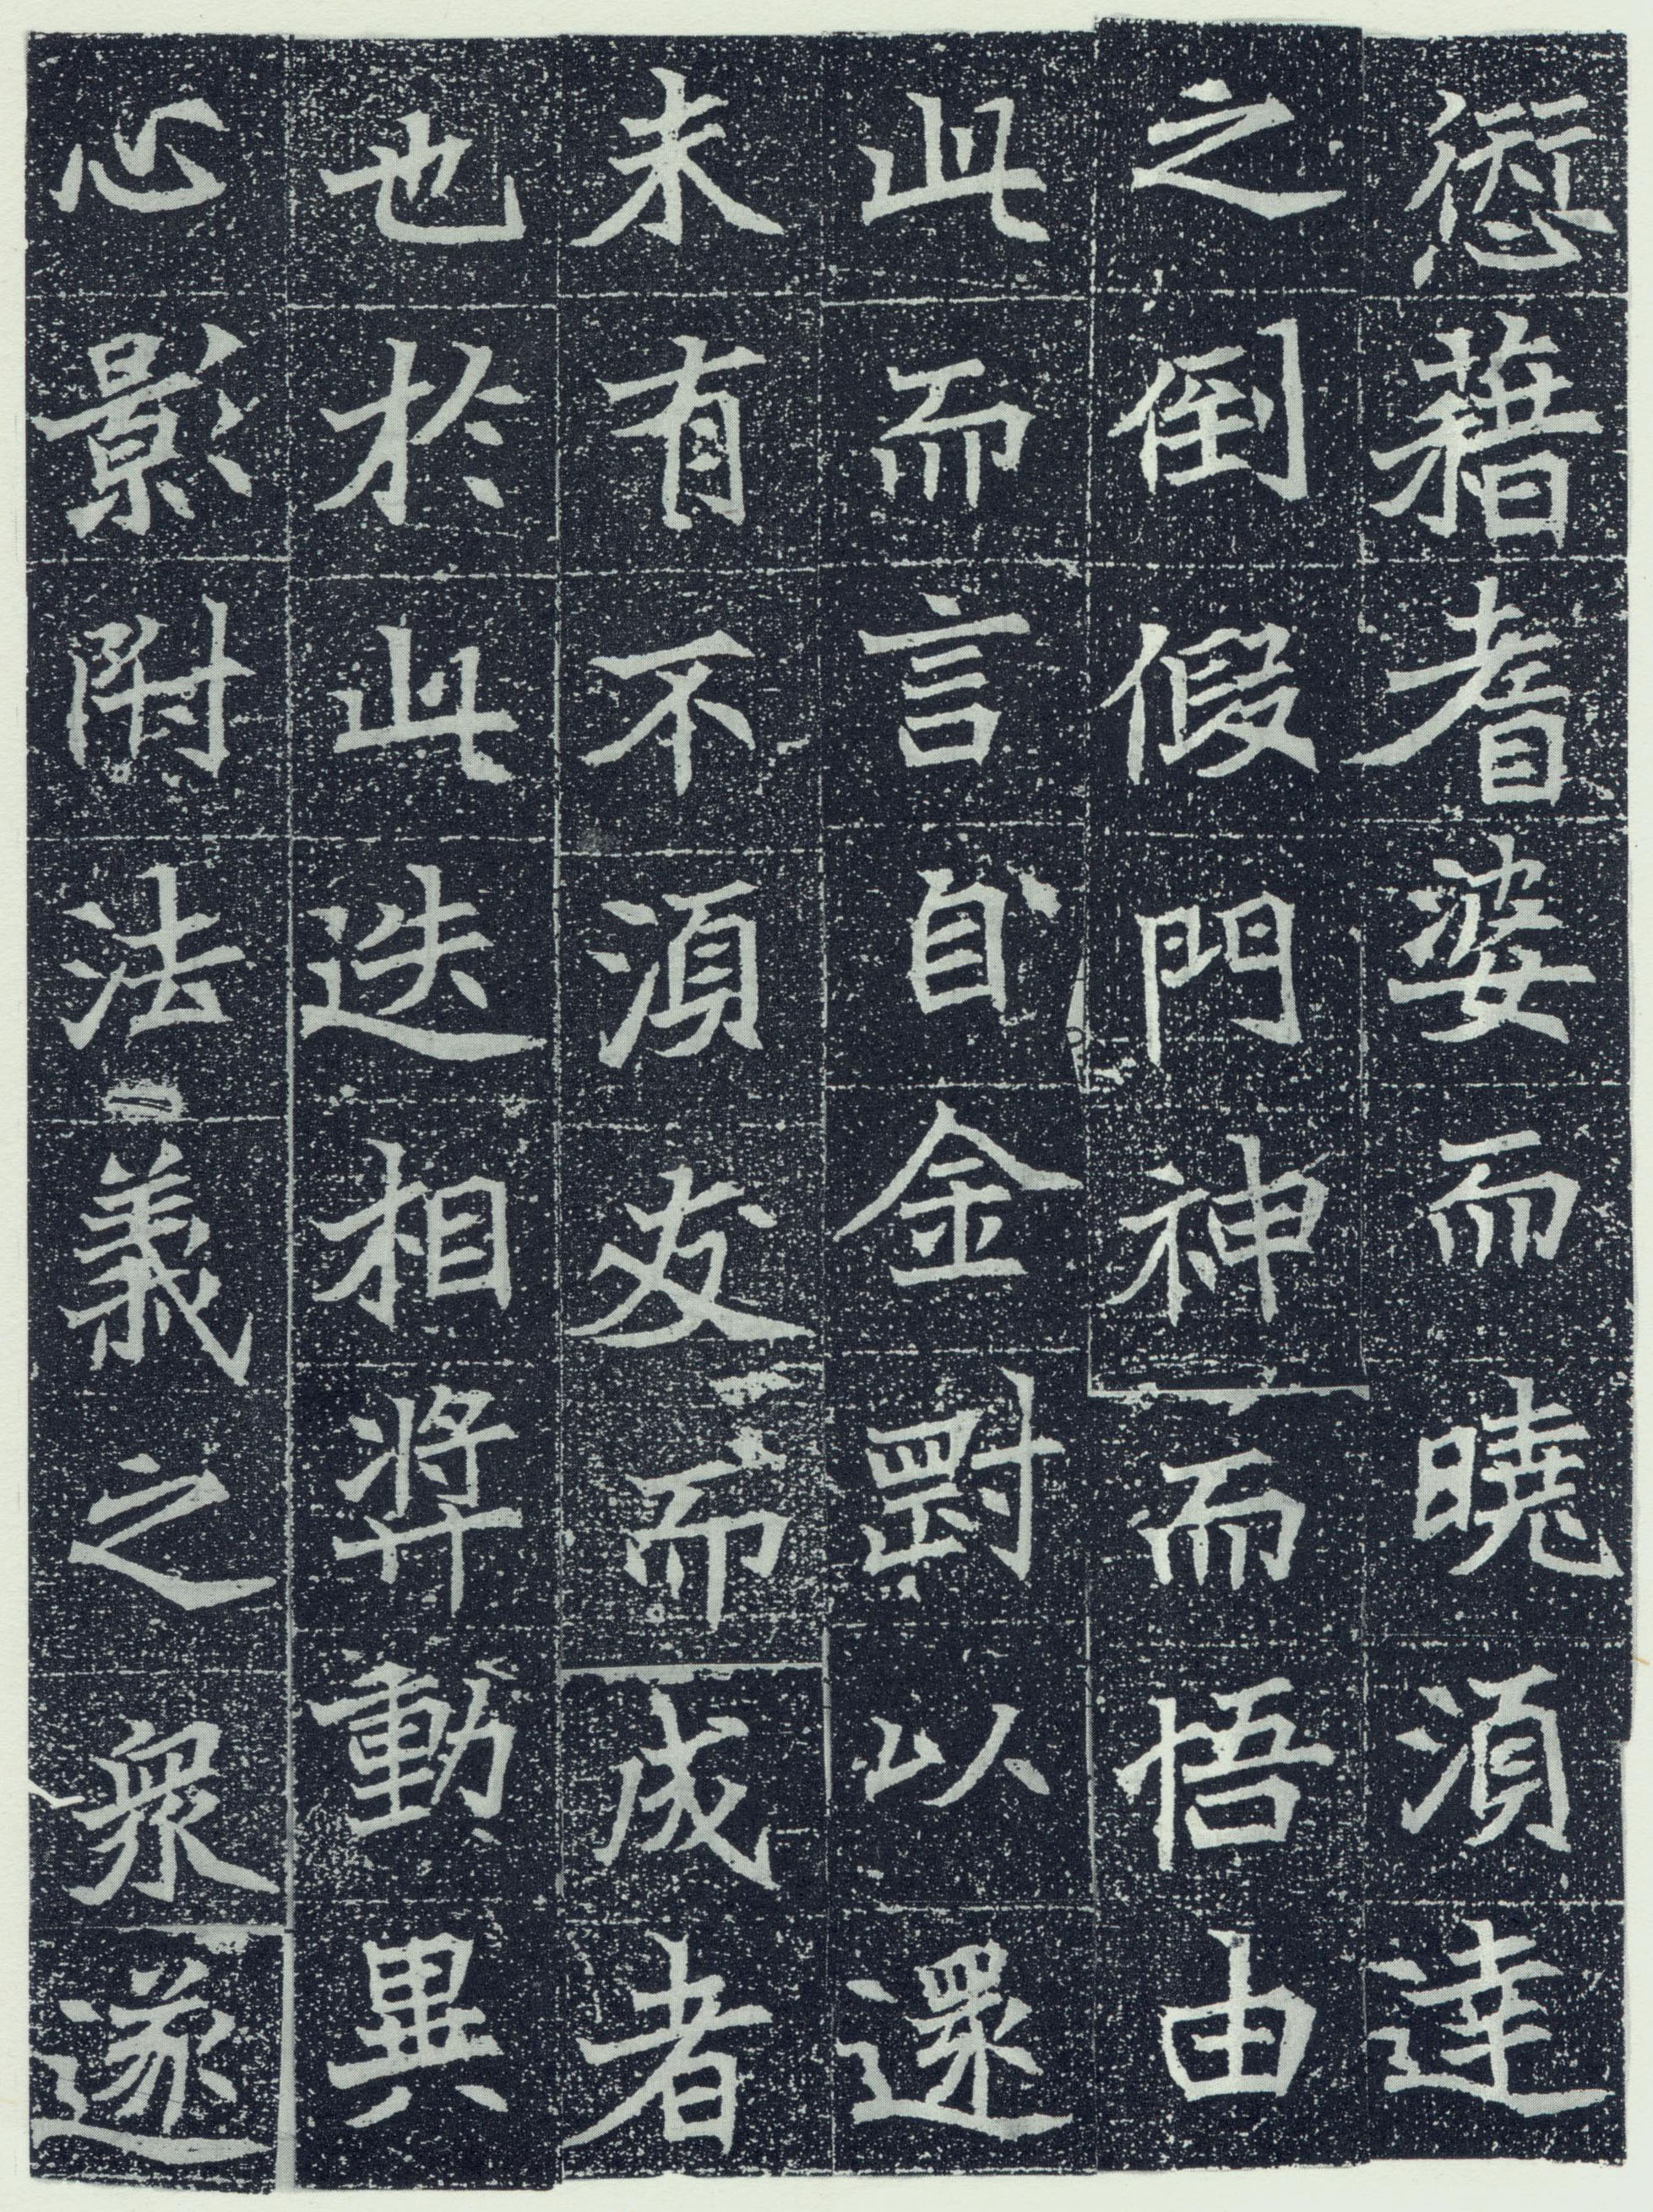 愆藉耆婆而曉湏達
之倒假門神而悟由
此而言自金剛以還
未有不湏友而成者
也於此迭相獎動異
心影附法義之衆遂